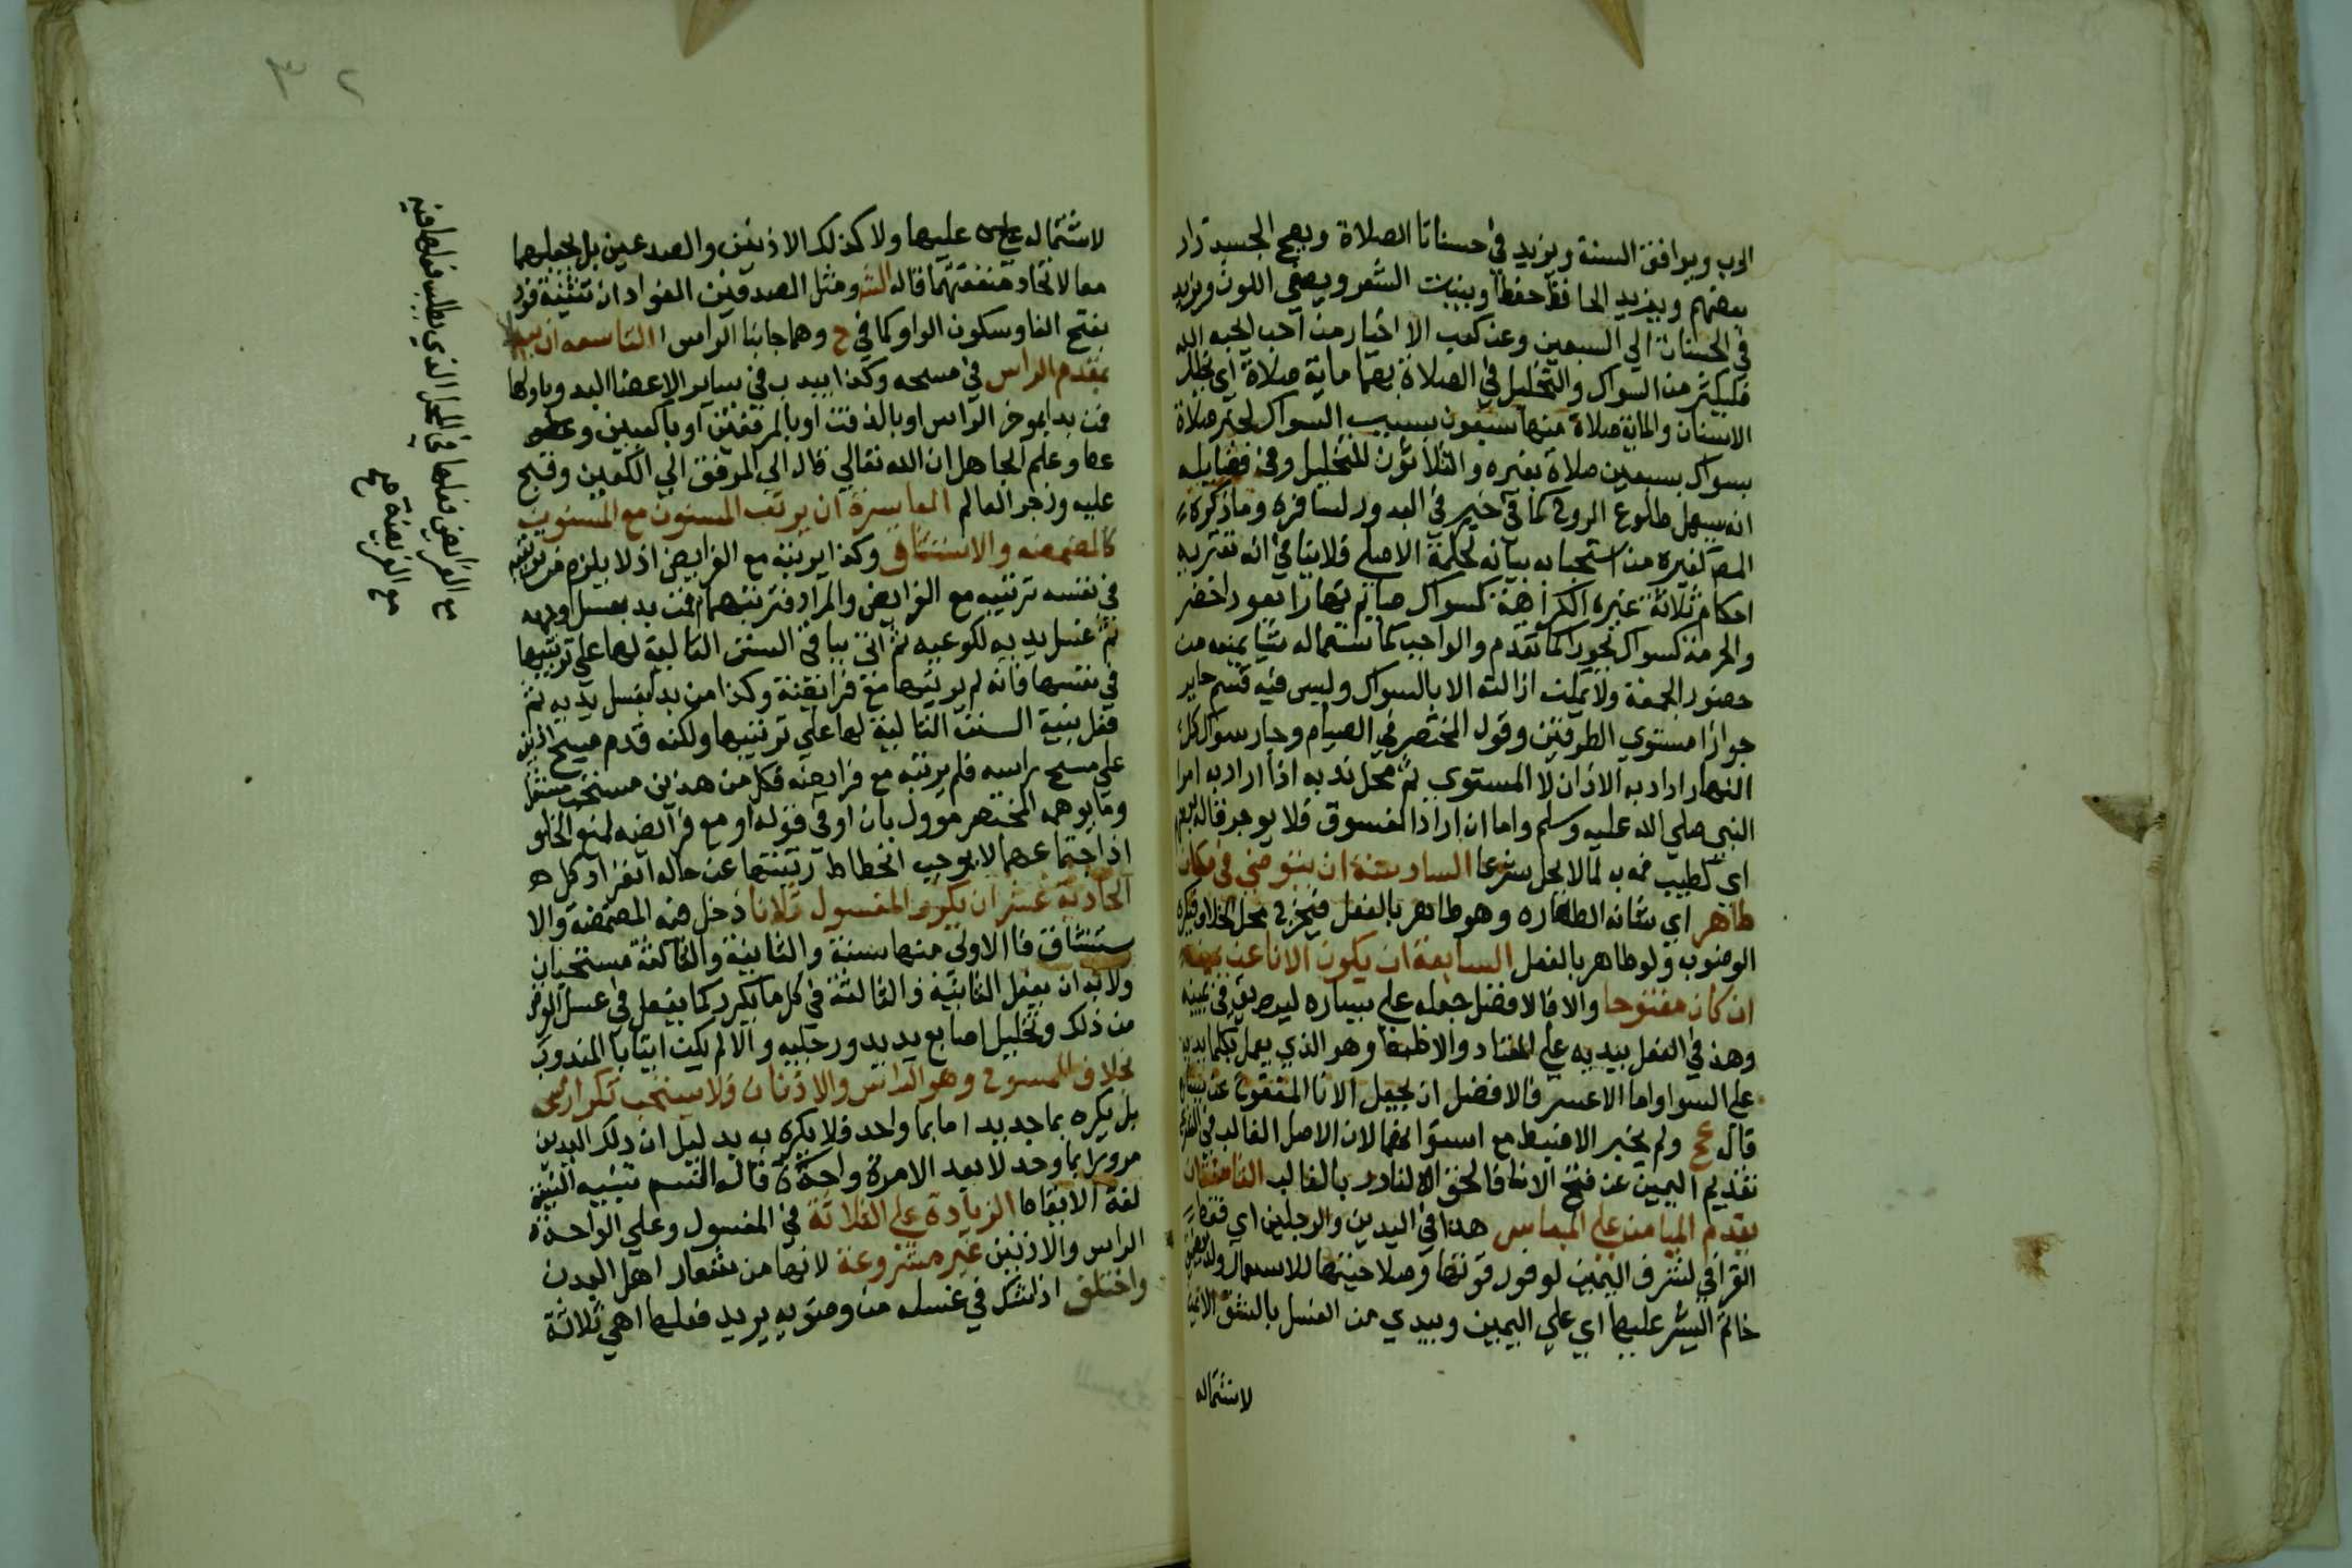 الرب ويوافق السنة ويزيد في حسناتا الصلاة ويصح الجسد زاد
بعضهم ويزيد الحافظ حفظا وينبت الشعر ويصفي اللون ويزيد
في الحسنات الي السبعين وعن كعب الاخيار من احب لحبه الله
فليكثر من السواك والتخليل في الصلاة بهما ماية صلاة اي تخلل
الاسنان والماية صلاة منها سبعون بسبب السواك لخبر صلاة
بسواك بسبعين صلاة بغيره والثلاثون للتخليل ومن فضايله
انه يسهل طلوع الروح كما في خبر في البدور لسافره وما ذكره
المص كغيره من استحبابه بيانه لحكمة الاصلي فلا ينافي انه تعتريه
احكام ثلاثة غيره الكراهة كسواك صايم نهارا بعود اخضر
والحرمة كسواك بجوزا كما تقدم والواجب كما استعماله شيا يمنعه من
حضور الجمعة ولا يمكن ازالته الا بالسواك وليس فيه قسم جايز
جوازا مستوي الطرفين وقول المختصر في الصيام وجاز سواك كل
النهار اراد به الاذان لا المستوي ثم محل ندبه اذا اراد به امرا
النبي صلي الله عليه وسلم واما ان اراد الفسوق فلا يوجر قاله بعضهم
اي كطيب فم به لما لا يحل شرعا السادسة ان يتوضي في مكان
طاهر اي شانه الطهاره وهو طاهر بالفعل فيخرج محل الخلا فيكره
الوضوء ولو طاهر بالفعل السابعة ان يكون الانا عن يمينه
ان كان مفتوحا والا فالافضل جعله علي يساره ليصب في يمينه
وهذ في الفعل بيديه علي المعتاد والاظبط وهو الذي يعمل بكلتا يديه
علي السوا واما الاعسر فالافضل ان يجعل الانا المفتوح عن يساره
قال عج ولم يخير الاضبط مع استوايهما لان الاصل الغالب في الشرع
تقديم اليمين عن فتح الانا فالحق النادر بالغالب الثامنة ان
يقدم الميامن علي المياسر هذا في اليدين والرجلين اي فقط
القرافي لشرف اليمين لوفور قوتها وصلاحيتها للاستعمال ولذا يضيق
خاتم اليسر عليها اي علي اليمين ويبدي من الغسل بالشق الايمن
لاشتماله
٣٢
لاشتماله علي عليها ولا كذلك الاذنين والصدغين بل يجعلهما
معا لاتحاد منفعتهما قاله الشه ومثل الصدغين الفوادان تثنية فود
بفتح الفا وسكون الواو كما في ح وهما جانبا الراس التاسعه ان يبدا
بمقدم الراس في مسحه وكذا يبدب في ساير الاعضا البد وباولها
فمن بدا بموخر الراس او بالذقن او بالمرفقين او بالكعبين وعظ
عما وعلم الجاهل ان الله تعالي قال الي المرفق الي الكعبين وقبح
عليه وزجر العالم العاشرة ان يرتب المسنون مع المسنون
كالمضمضه والاستنشاق وكذا يرتبه مع الفرايض اذ لا يلزم من ترتيبه
في نفسه ترتيبه مع الفرايض والمراد فترتبهما فمن بد بغسل وجهه
ثم غسل يديه لكوعيه ثم اتي بباقي السنن التالية لها علي ترتيبها
في نفسها فانه لم يرتبها مع فرايضه وكذا من بدا بغسل يديه ثم
فعل بقية السنن التالية لها علي ترتيبها ولكنه قدم مسح اذنيه
علي مسح راسه فلم يرتبه مع فرايضه فكل من هذين مستحب مستقل
وما يوهمه المختصر موول بان او في قوله او مع فرايضه لمنع الخلو
اذ اجتماعهما لا يوجب انحطاط رتبتهما عن حاله انفراد كل هـ
الحادية عشر ان يكرر المغسول ثلاثا دخل فيه المضمضة والا
ستنشاق فا الاولي منها سنة والثانية والثالثة مستحبان
ولابد ان يفعل الثانية والثالثة في كل ما يكرر كما يفعل في غسل الوجه
من ذلك وتخليل اصابع يديه ورجليه والا لم يكن اتيابا المندوب
بخلاف الممسوح وهو الراس والاذنان فلا يستحب تكراره
بل يكره بما جديد اما بما واحد فلا يكره به بدليل ان ذلك اليدين
مرورا بما واحد لا يعد الامرة واحدة قاله التسم تنبيه الثنية
لغة الايقاظ الزيادة علي الثلاثة في المغسول وعلي الواحدة
الراس والاذنين غير مشروعة لانها من شعار اهل البدن
واختلف اذا شك في غسله من وضويه يريد فعلها اهي ثلاثة
مع الفرايض فعلها في المحل الذي يطلب فعلها فيه
مع الفريضة صح